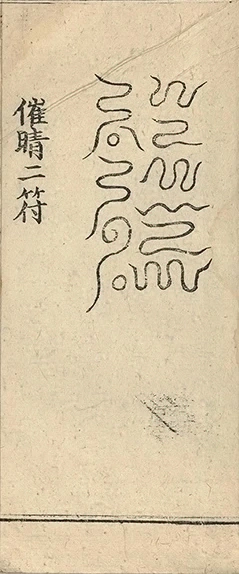 催晴二符